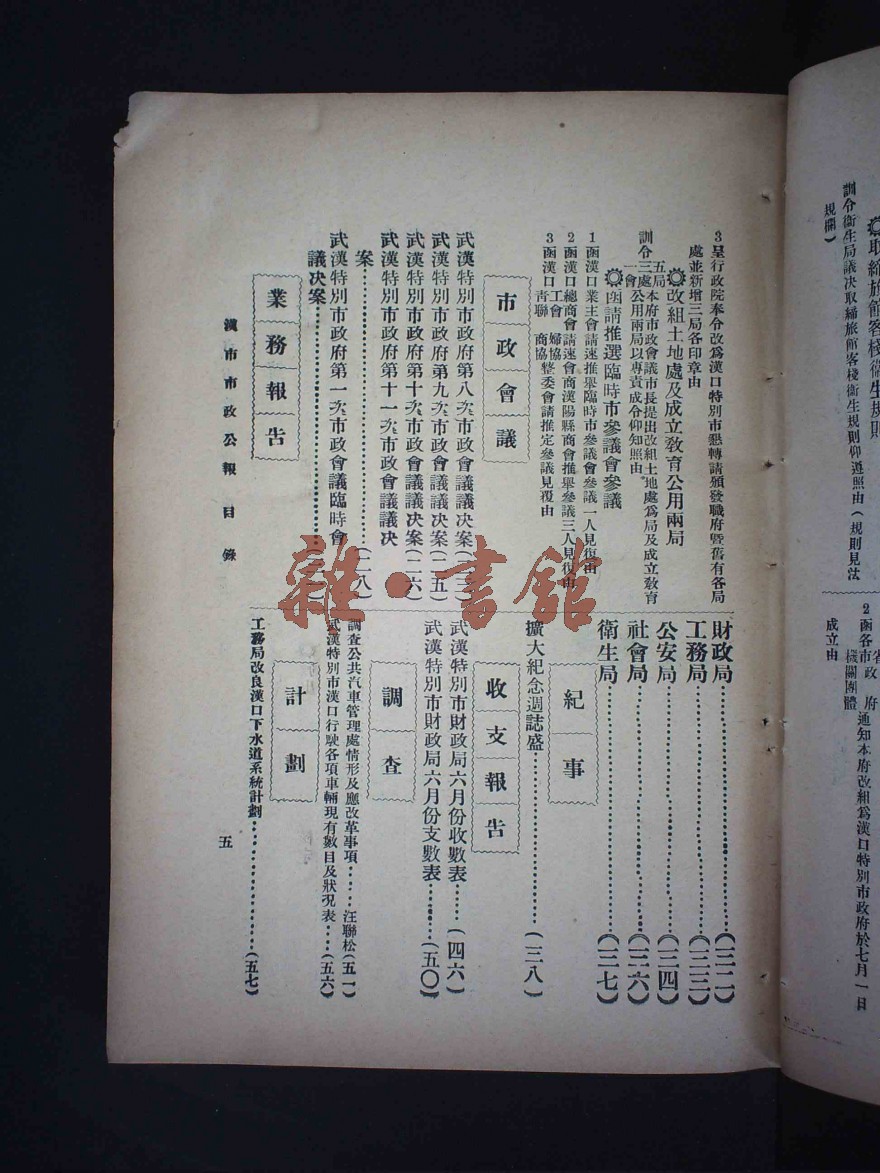 訓令衞生局議决取締旅館客棧衞生規則仰遵照由(規則見法
規欄)
成立由
3呈行政院奉令改爲漢口特別市懇轉請頒發職府暨舊有各局
處並新增三局各印章由
改組土地處及成立敎育公用兩局
訓令五局三處一會本府市政會議市長提出改組土地處爲局及成立敎育
公用兩局以專責成令仰知照由
函請推選臨時市參議會參議
1函漢口業主會請速推舉臨時市參議會參議一人見復由
2函漢口總商會請速會商漢陽縣商會推舉參議三人見復由
3函漢口工會婦協靑聯商協整委會請推定參議見覆由
市政會議
武漢特別市政府第八次市政會議議决案
武漢特別市政府第九次市政會議議决案(二五)
武漢特別市政府第十次市政會議議决案(二六)
武漢特別市政府第十一次市政會議議决
案……(二八)
武漢特別市政府第一次市政會議臨時會
議决案……
業務報告
財政局……(三二)
工務局……(三三)
公安局……(三四)
社會局……(三六)
衞生局……(三七)
紀事
擴大紀念週誌盛……(三八)
收支報告
武漢特別市財政局六月份收數表……(四六)
武漢特別市財政局六月份支數表……(五〇)
調查
調查公共汽車管理處情形及應改革事項……汪聯松(五一)
武漢特別市漢口行駛各項車輛現有數目及狀况表……(五六)
計劃
工務局改良漢口下水道系統計劃……(五七)
漢市市政公報 目錄
五
雜·書館